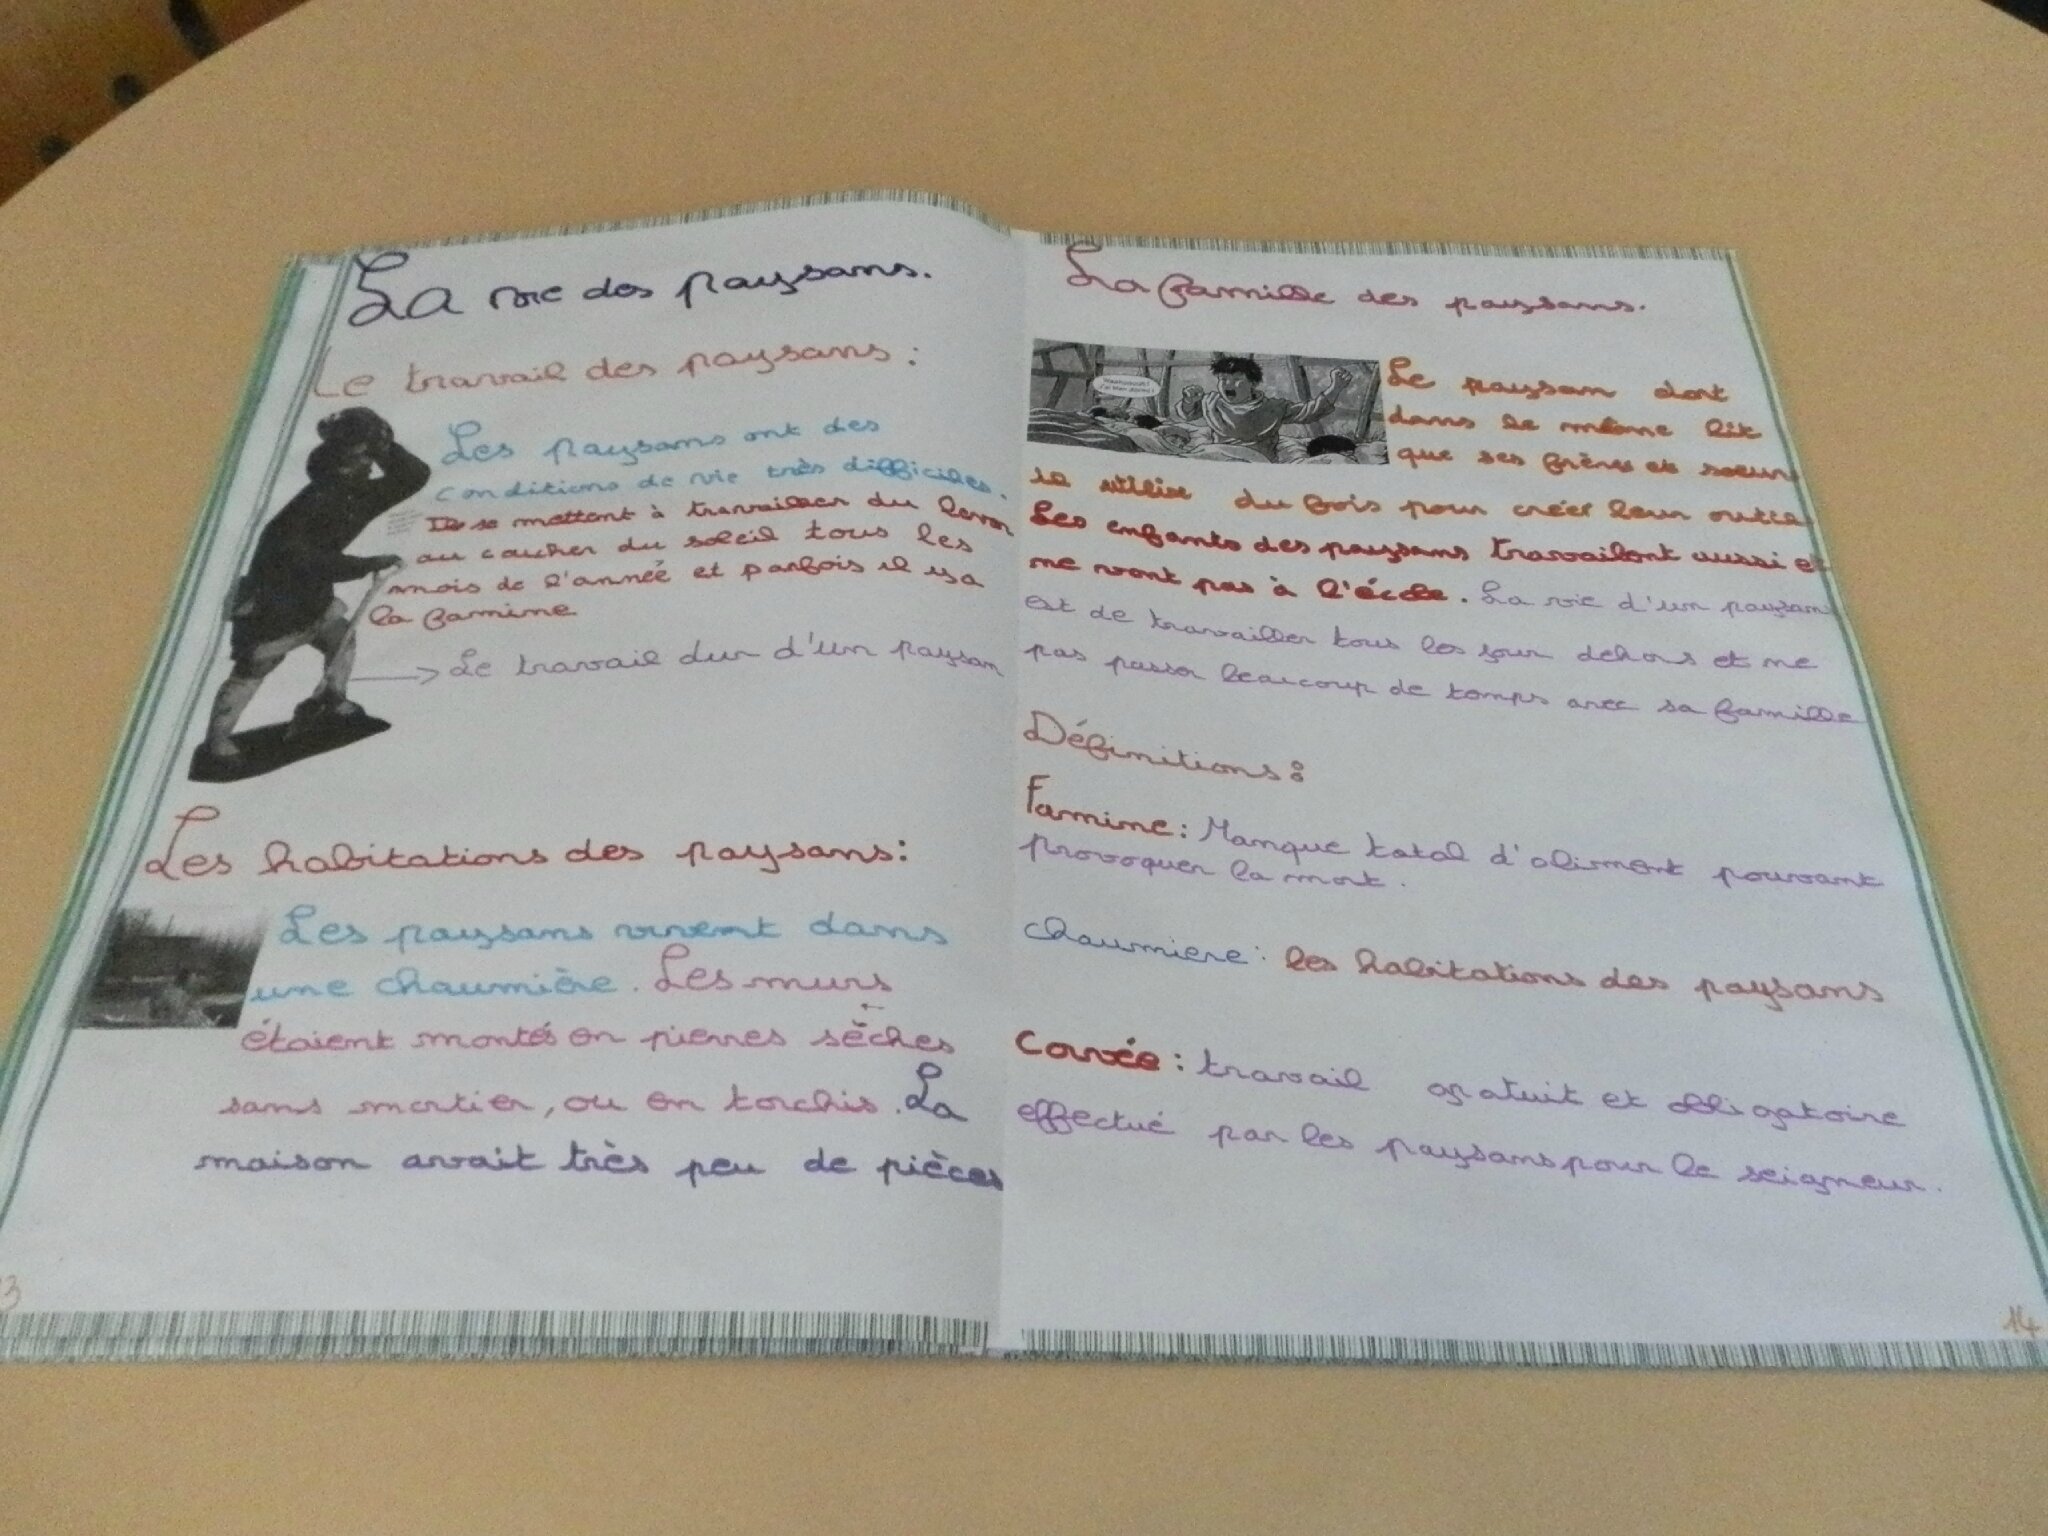 La vie des paysans.
Le travail des paysans :
Les paysans ont des
conditions de vie très difficiles.
Ils se mettent à travailler du lever
au coucher du soleil tous les
mois de l'année et parfois il y a
la famine
Le travail dur d'un paysan
Les habitations des paysans:
Les paysans vivent dans
une chaumière. Les murs
étaient montés en pierres sèches
sans mortier, ou en torchis. La
maison avait très peu de pièces
3
La famille des paysans.
Le paysan dort
dans le même lit
que ses frères et soeurs
il utilise du bois pour créer leur outils
Les enfants des paysans travaillent aussi et
ne vont pas à l'école. La vie d'un paysan
est de travailler tous les jour dehors et ne
pas passer beaucoup de temps avec sa famille
Définitions :
Famine : Manque total d'aliment pouvant
provoquer la mort.
chaumiere : les habitations des paysans
Corvée : travail gratuit et obligatoire
effectué par les paysans pour le seigneur.
14